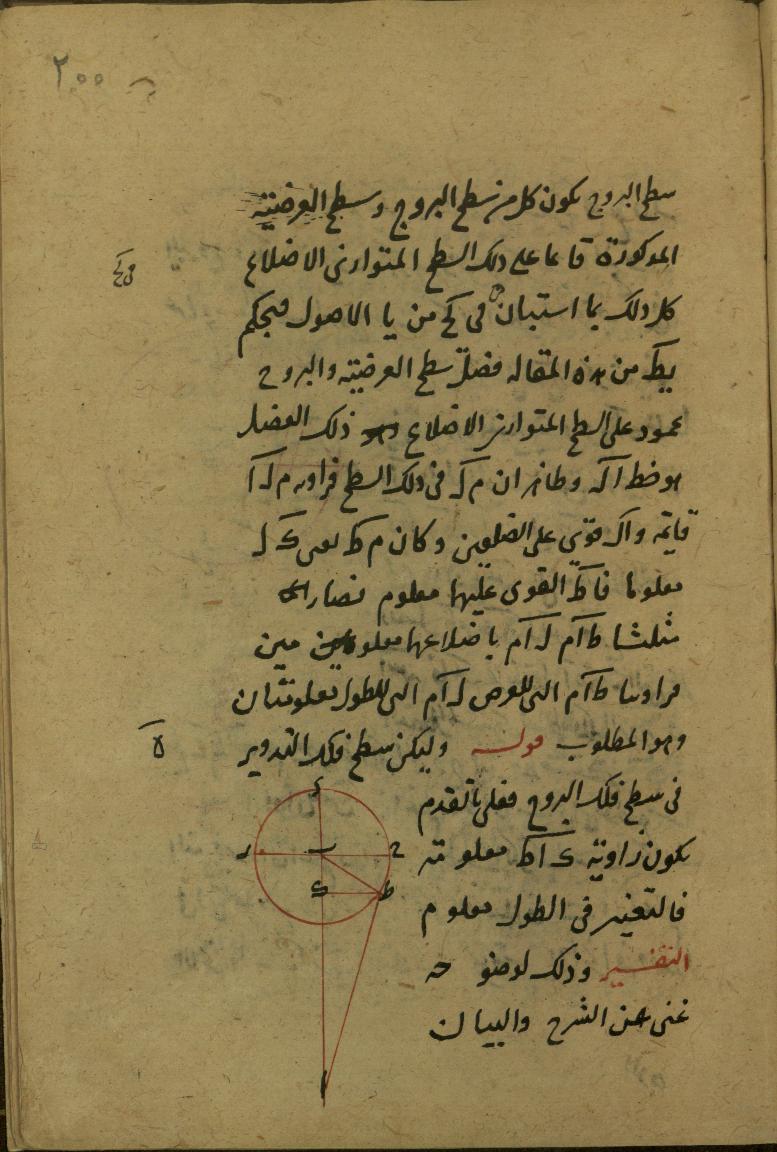 ٢٠٠
سطح البروج يكون كل من سطح البروج وسطح العرضيته
المذكورة قائما على ذلك السطح المتوازى الاضلاع
كل ذلك بما استبان فى كح من يا الاصول فبحكم
يط من هذه المقاله فصل سطح العرضيته والبروج
عمود على السطح المتوازى الاضلاع ذلك الفصل
هو خط اك وظاهر ان م ك فى ذلك السطح فزاويه م ك ا
قايمة واك قوى على الضلعين وكان م ط يعنى ك
معلوما فا ط القوى عليها معلوم فصار
مثلثا ط ا م ك ا م باضلاعهما معلومين
فزاويتا ط ا م التى للعرض ك ا م التى للطول معلومتان
وهو المطلوب قوله وليكن سطح فلك التدوير
فى سطح فلك البروج فعلى ما تقدم
يكون زاوية ك ا ط معلومة
فالتغير فى الطول معلوم
التفسير وذلك لوضوحه
غنى عن الشرح والبيان
ح
ب
ك
ط
ا